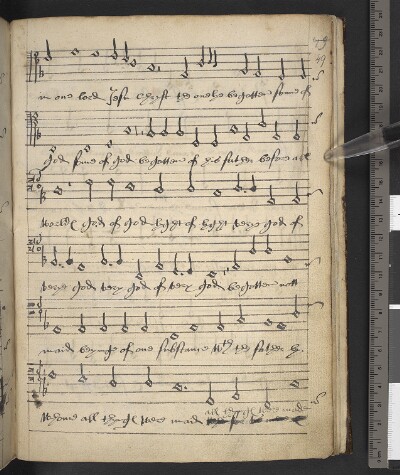 49
in one lord Jesu Christ the onelie begotten sonne of
god sonne of god begotten of his father before all
worldes god of god light of light verye god of
verye god verye god of verye god begotten nott
made beynge of one substance wth the father by
whome all thyngs were made all thyngs were made